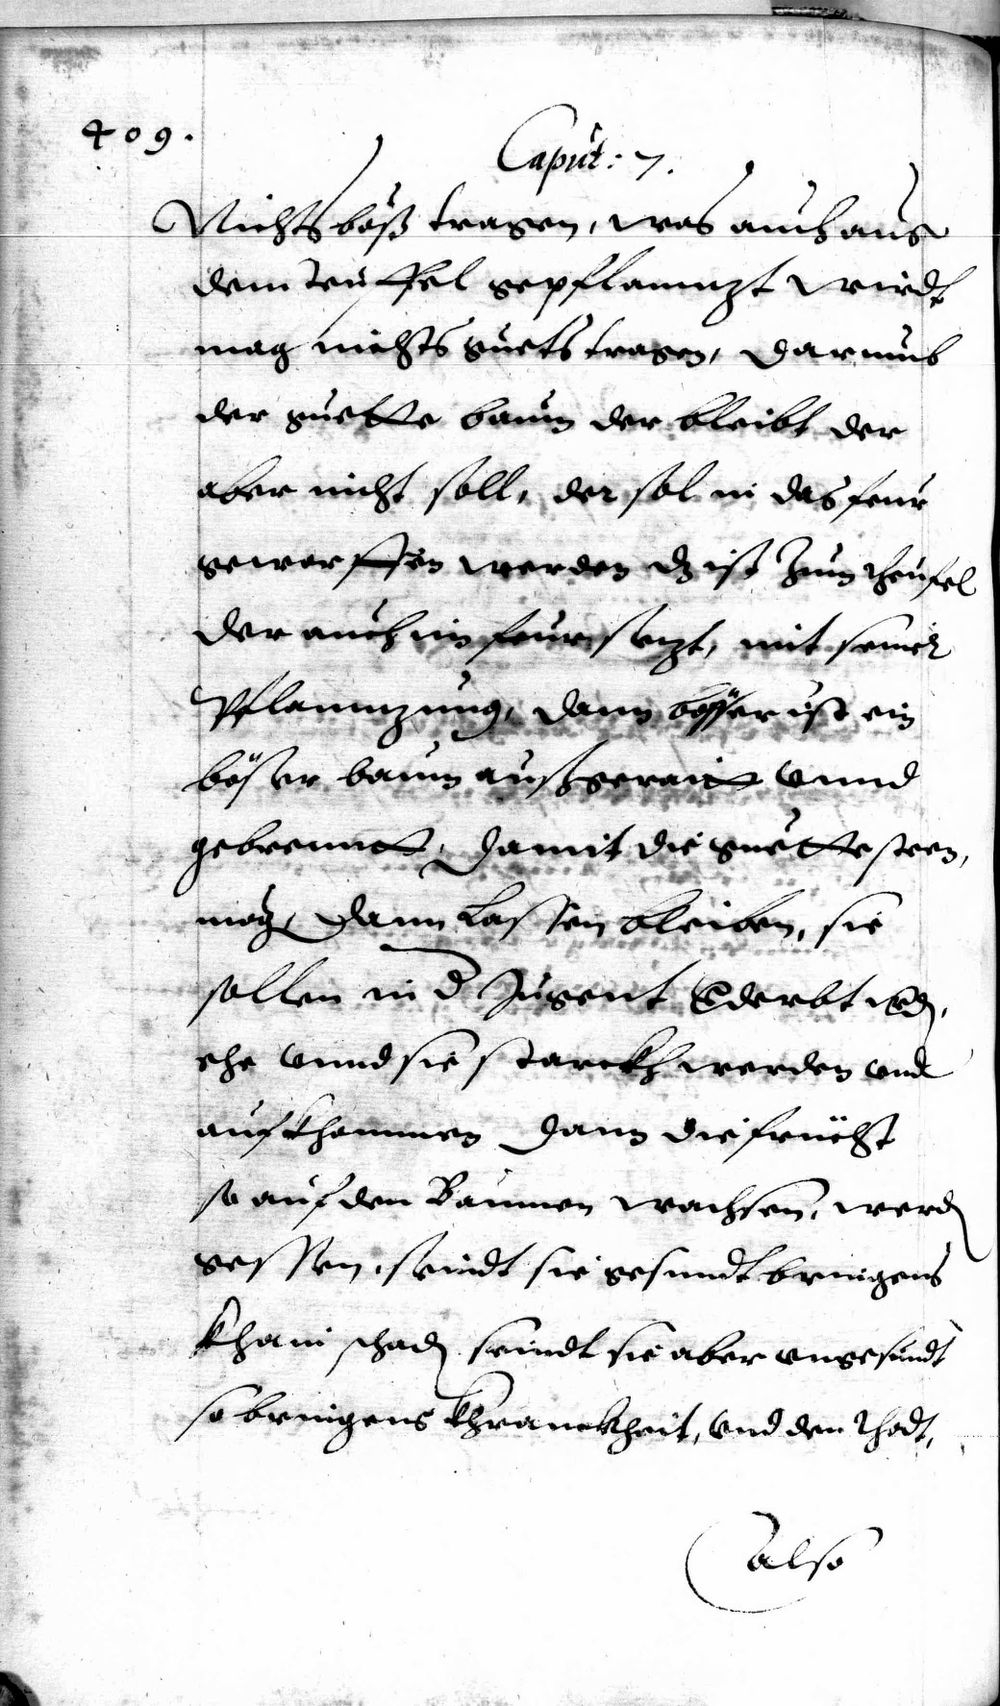 409.
Caput: 7.
Nichts böß tragen, was auch aus
dem teuffel gepflanntzt wirdt
mag nichts guets tragen, darumb
der guette baum der bleibt der
aber nicht soll, der sol in das feur
geworffen werden dz ist zum theufel
der auch im feur sitzt, mit seiner
Pflanntzung, dann besser ist ein
böser baum außgereit vnnd
gebrennet, damit die guette steen,
mög, dann lassen bleiben, sie
sollen in d Jugent verderbt werden,
ehe vnnd sie starckh werden vnd
aufkhommen dann die früeht
so auf den Baumen wachsen, werden
gessen, seindt sie gesundt bringens
khain schaden seindt sie aber vngesundt
so bringens khranckheit, vnd den thodt,
also